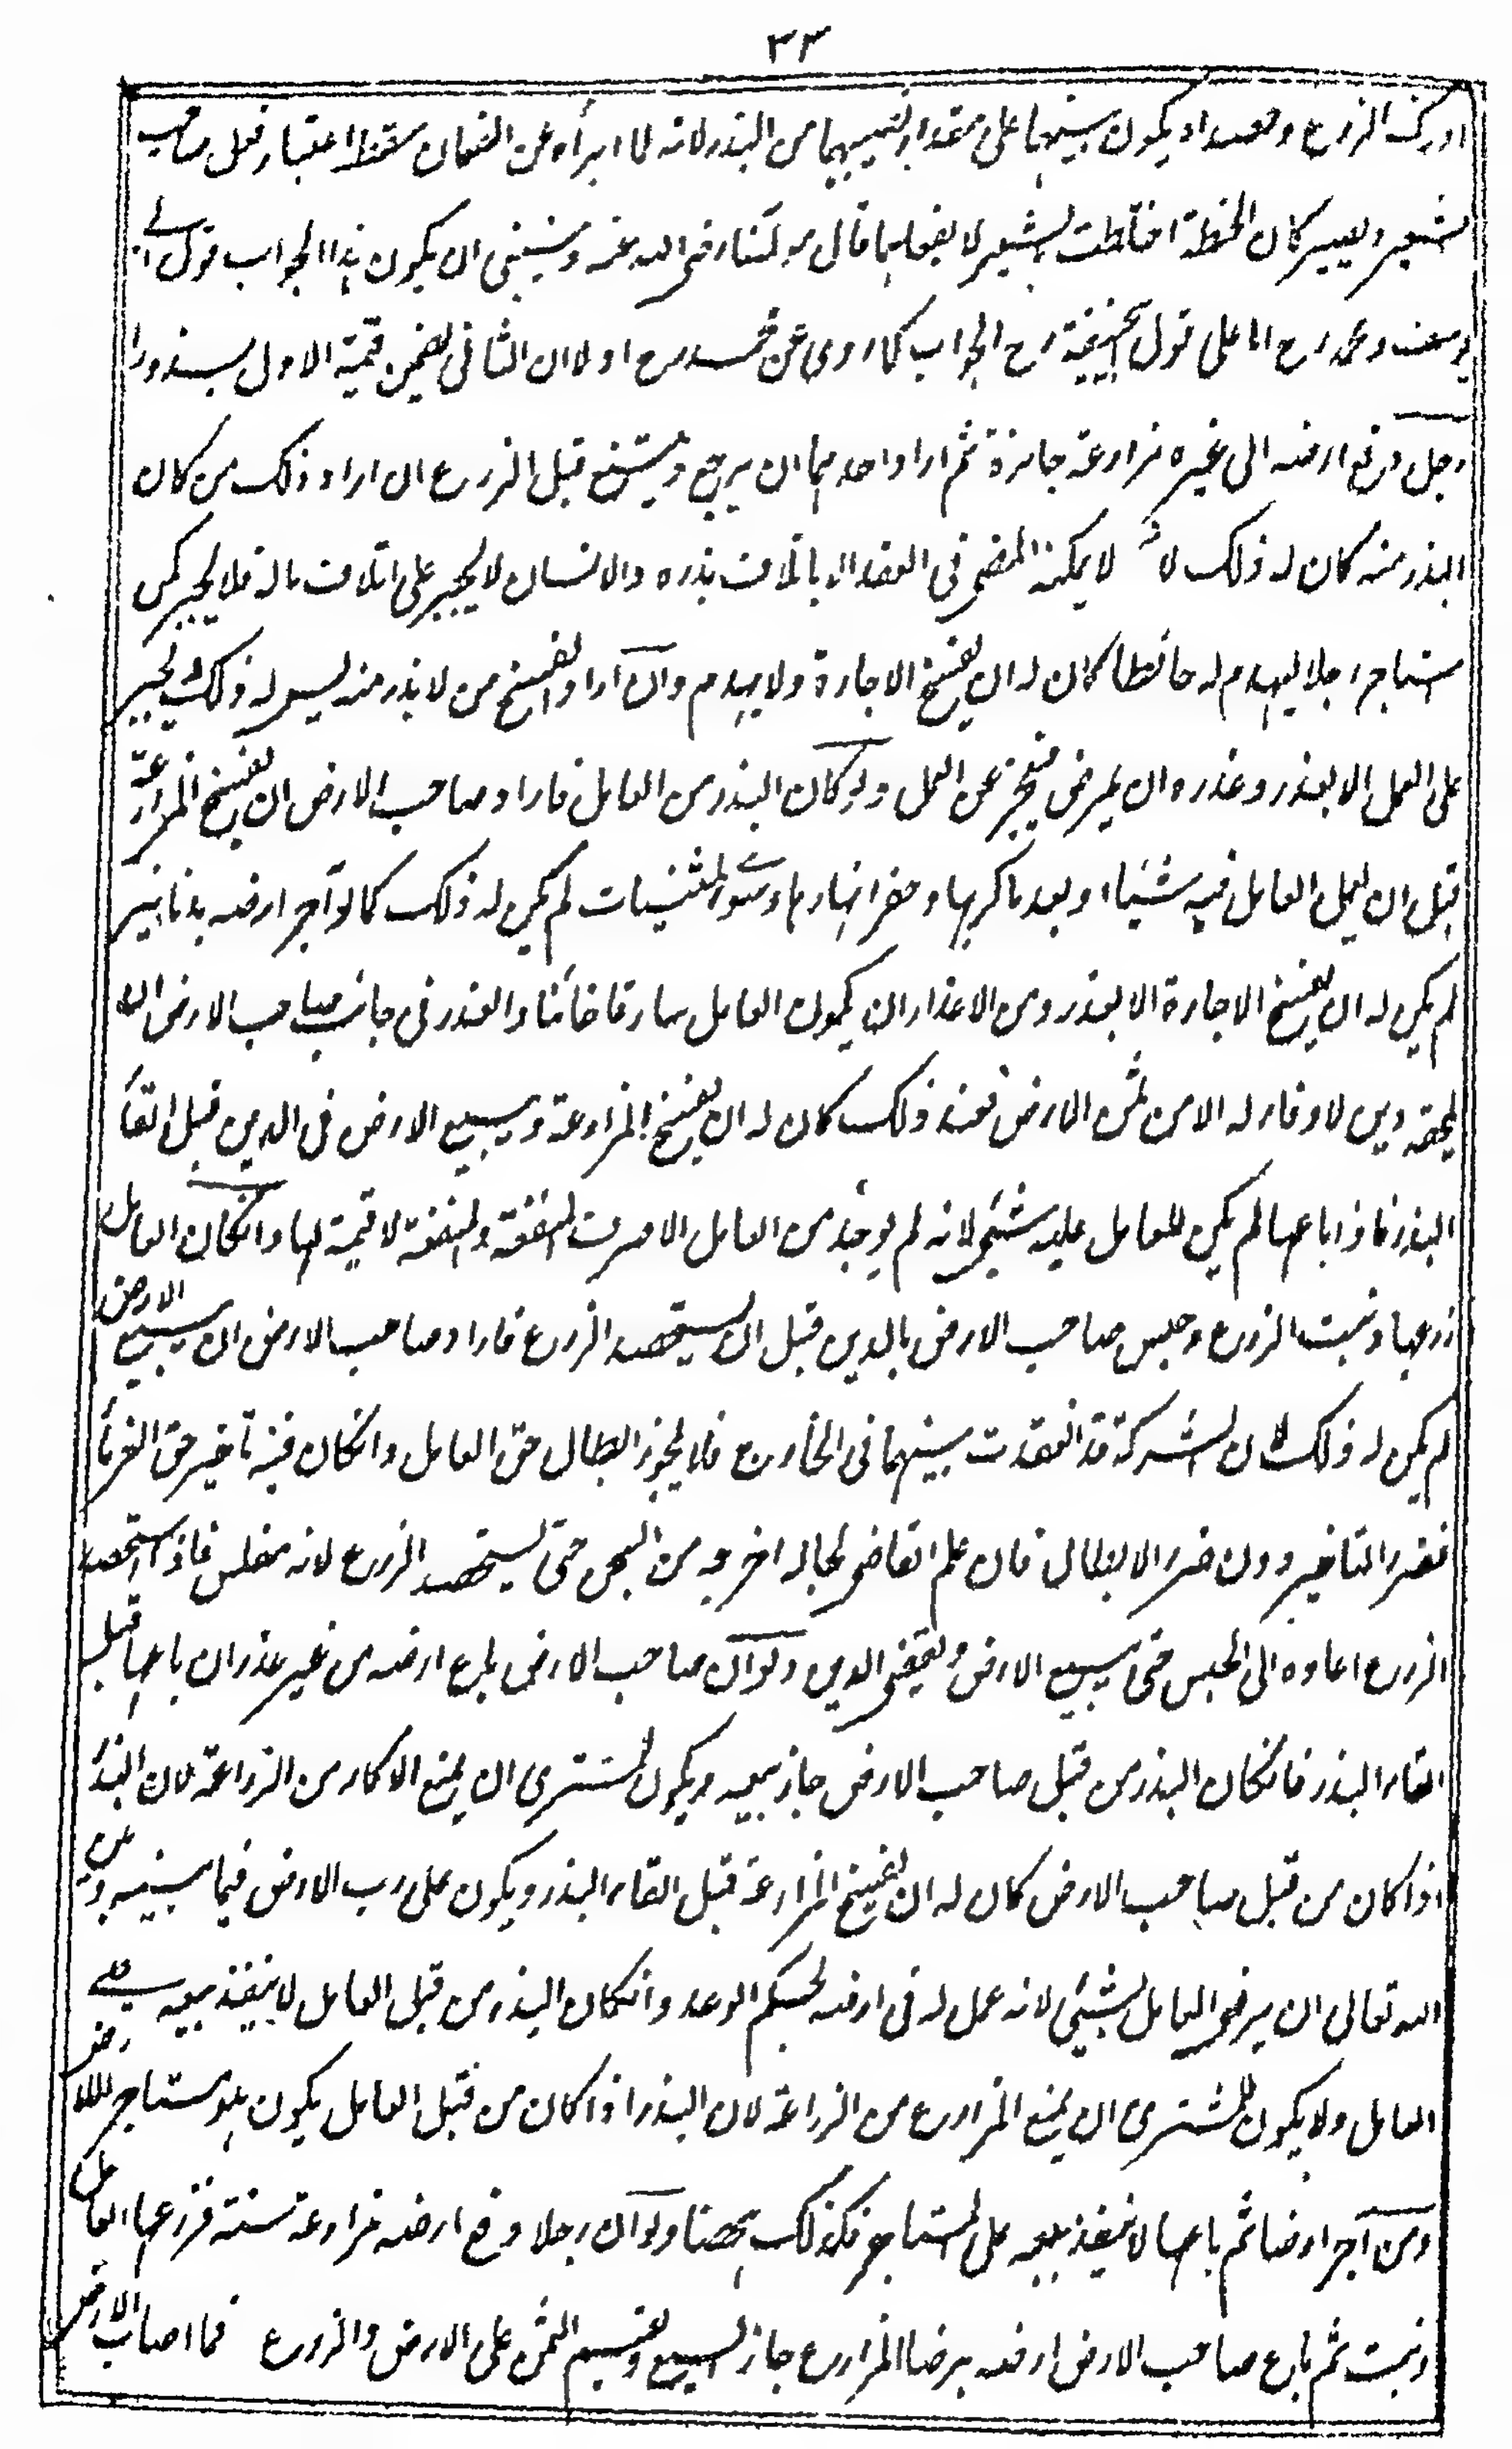 ٣٣
ادرك الزرع وحصداه يكون بينهما على مقدار نصيبهما من البذر لانه لما ابرأه عن الضمان سقط اعتبار فعل صاحب
الشعير ويصير كان الحنطة اختلطت بالشعير لا بفعلهما قال مولانا رضى الله عنه وينبغى ان يكون هذا الجواب قول ابى
يوسف ومحمد رح اما على قول ابى حنيفة رح الجواب كما روى عن محمد رح اولا ان الثانى يضمن قيمة الاول مبذورا
رجل دفع ارضه الى غيره مزارعة جائزة ثم اراد احدهما ان يرجع ويمتنع قبل الزرع ان اراد ذلك من كان
البذر منه كان له ذلك لانه لا يمكنه المضى فى العقد الا باتلاف بذره والانسان لا يجبر على اتلاف ماله فلا يجبر كمن
استاجر رجلا ليهدم له حائطا كان له ان يفسخ الاجارة ولا يهدم وان اراد الفسخ من لا بذر منه ليس له ذلك ويجبر
على العمل الا بعذر وعذره ان يمرض فيعجز عن العمل ولو كان البذر من العامل فاراد صاحب الارض ان يفسخ المزارعة
قبل ان يعمل العامل فيه شيئا او بعد ما كربها وحفر انهارها وسوى المثنيات لم يكن له ذلك كما لو آجر ارضه بدنانير
لم يكن له ان يفسخ الاجارة الا بعذر ومن الاعذار ان يكون العامل سارقا خائنا والعذر فى جانب صاحب الارض ان
يلحقه دين لا وفاء له الا من ثمن الارض فعند ذلك كان له ان يفسخ المزارعة ويبيع الارض فى الدين قبل القاء
البذر فاذا باعها لم يكن للعامل عليه شئ لانه لم يوجد من العامل الا صرف المنفعة والمنفعة لا قيمة لها وانكان العامل
زرعها ونبت الزرع وحبس صاحب الارض بالدين قبل ان يستحصد الزرع فاراد صاحب الارض ان يبيع الارض
لم يكن له ذلك لان الشركة قد انعقدت بينهما فى الخارج فلا يجوز ابطال حق العامل وانكان فيه تاخير حق الغرماء
فضرر التاخير دون ضرر الابطال فان علم القاضى بحاله اخرجه من السجن حتى يستحصد الزرع لانه مفلس فاذا استحصد
الزرع اعاده الى الحبس حتى يبيع الارض ويقضى الدين ولو ان صاحب الارض باع ارضه من غير عذر ان باعها قبل
القاء البذر فانكان البذر من قبل صاحب الارض جاز بيعه ويكون للمشترى ان يمنع الاكار من الزراعة لان البذر
اذا كان من قبل صاحب الارض كان له ان يفسخ المزارعة قبل القاء البذر ويكون على رب الارض فيما بينه وبين
الله تعالى ان يرضى العامل بشئ لانه عمل له فى ارضه بحكم الوعد وانكان البذر من قبل العامل لا ينفذ بيعه على
العامل ولا يكون للمشترى ان يمنع المزارع من الزراعة لان البذر اذا كان من قبل العامل يكون هو مستاجر للارض
ومن آجر ارضا ثم باعها لا ينفذ بيعه على المستاجر فكذلك ههنا ولو ان رجلا دفع ارضه مزارعة سنة فزرعها العامل
ونبت ثم باع صاحب الارض ارضه برضا المزارع جاز البيع ويقسم الثمن على الارض والزرع فما اصاب الارض